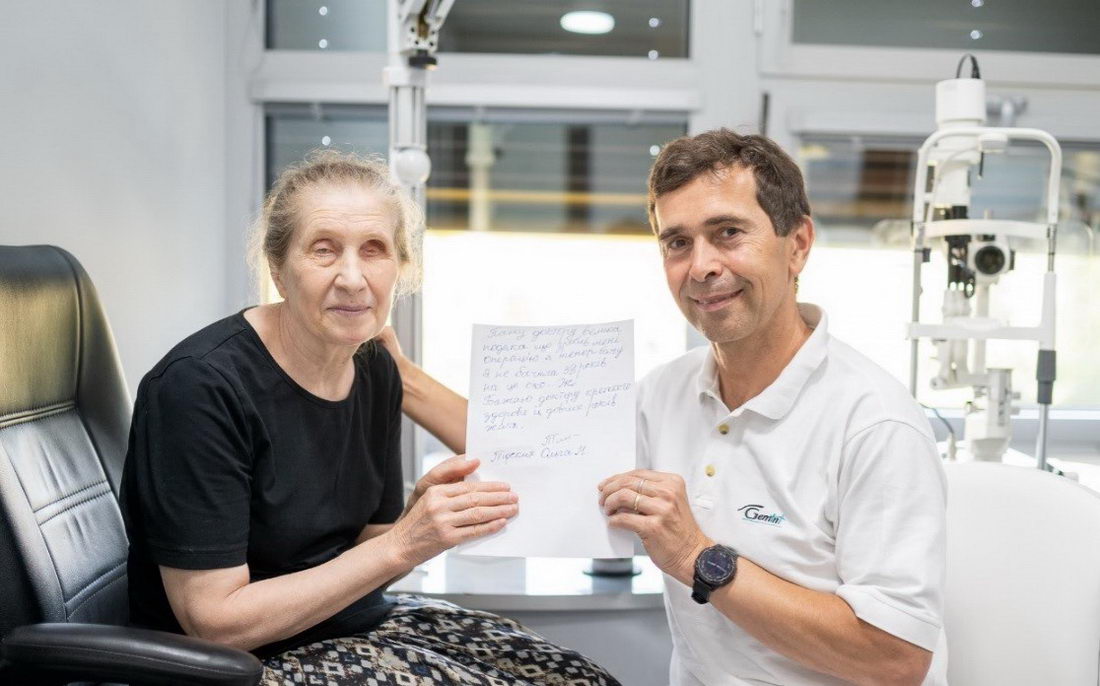 Пану доктору велика
подяка що зробив мені
операцію я тепер бачу
Я не бачила 32 років
на це око.
Бажаю доктору крепкого
здоровя й довгих років
життя.
Ольга
Gemini